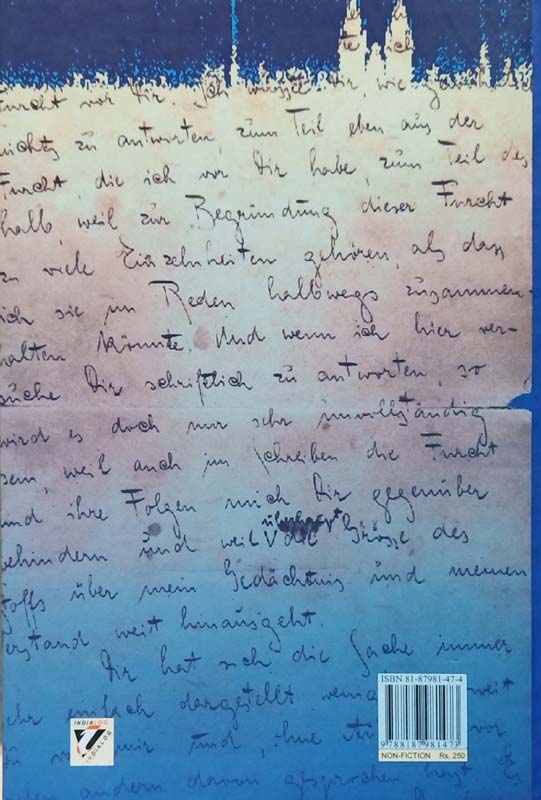 te ich
urcht vor Dir. Ich wusste Dir wie
nichts zu antworten, zum Teil eben aus der
Furcht, die ich vor Dir habe, zum Teil des
halb, weil zur Begründung dieser Furcht
zu viele Einzelnheiten gehören, als dass
ich sie im Reden halbwegs zusammen-
halten könnte. Und wenn ich hier ver-
suche Dir schriftlich zu antworten, so
wird es doch nur sehr unvollständig
sein, weil auch im Schreiben die Furcht
und ihre Folgen mich Dir gegenüber
behindern und weil überhaupt die Grösse des
toffs über mein Gedächtnis und meinen
erstand weit hinausgeht.
Dir hat sich die Sache immer
ehr einfach dargestellt, weit
mir und, ohne vor
len andern davon gesprochen hast. Es
ISBN 81-87981-47-4
9 788187 981473
NON-FICTION Rs. 250
INDIALOG
INDIALOG